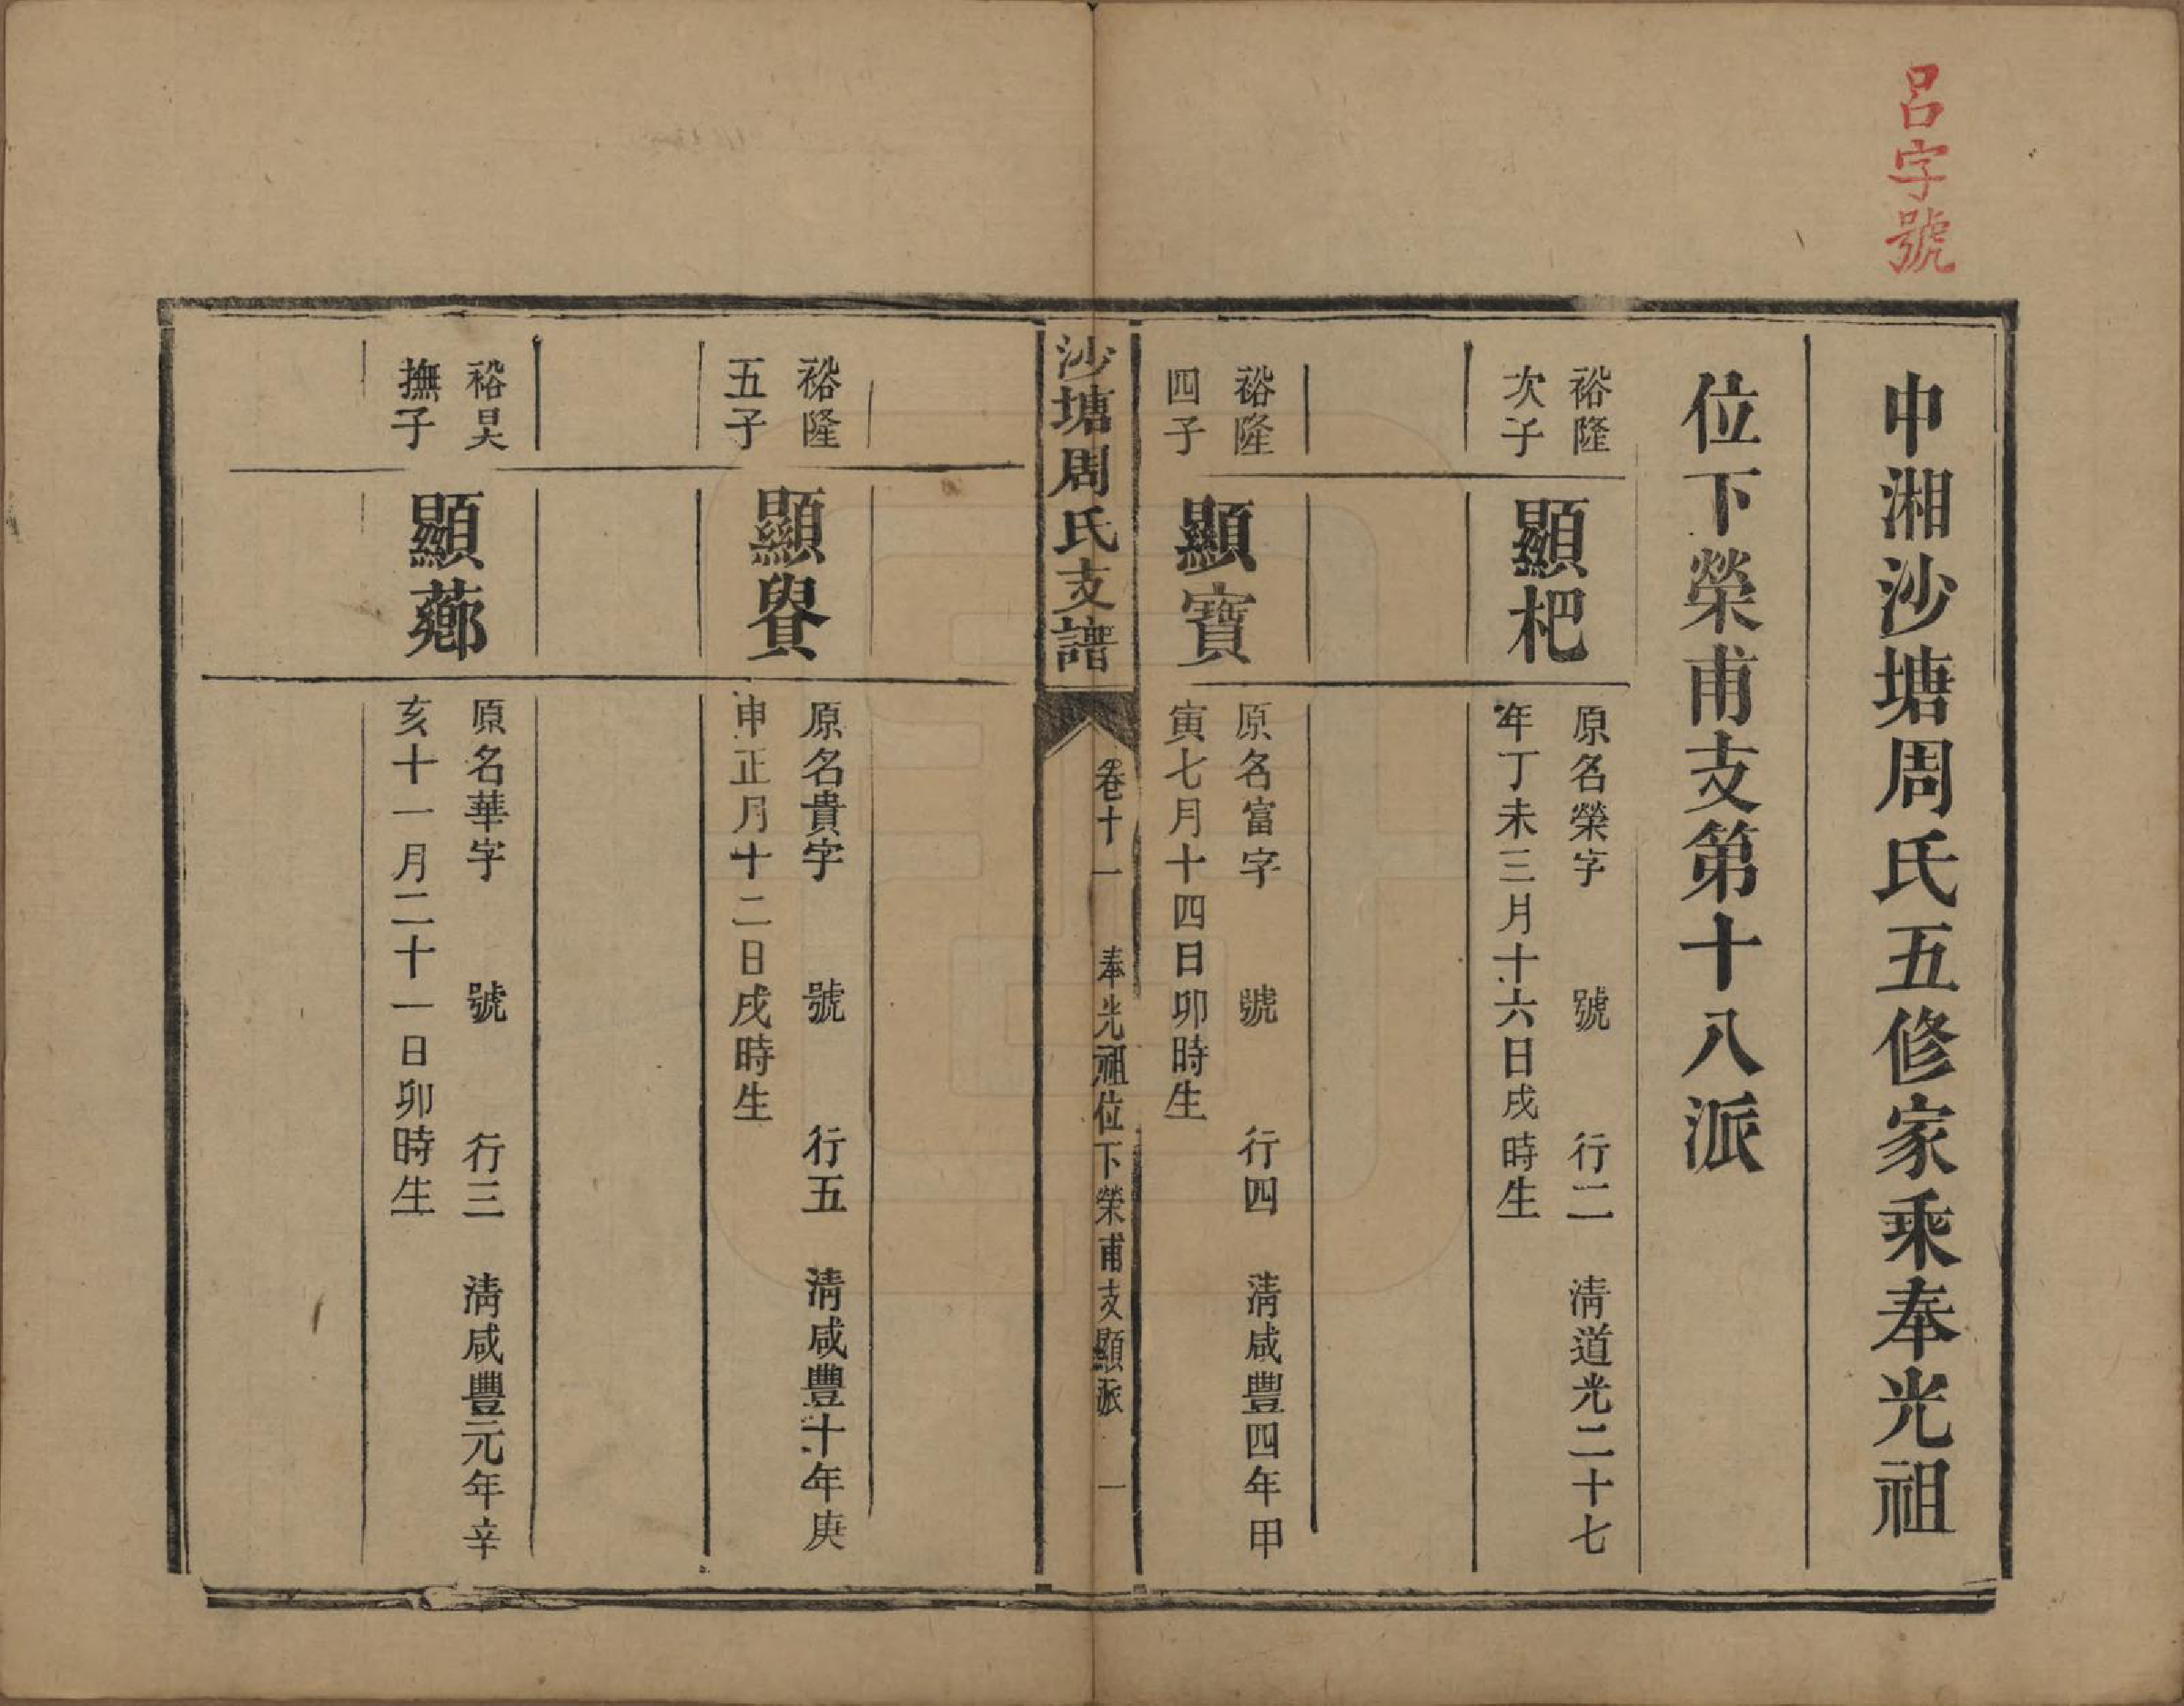 呂字號
中湘沙塘周氏五修家乘奉光祖
位下榮甫支第十八派
裕隆
次子
顯杷
原名榮字　號　行二　清道光二十七
年丁未三月十六日戌時生
裕隆
四子
顯寶
原名富字　號　行四　清咸豐四年甲
寅七月十四日卯時生
沙塘周氏支譜
卷十一　奉光祖位下榮甫支顯派　一
裕隆
五子
顯貴
原名貴字　號　行五　清咸豐十年庚
申正月十二日戌時生
裕昊
撫子
顯薌
原名華字　號　行三　清咸豐元年辛
亥十一月二十一日卯時生